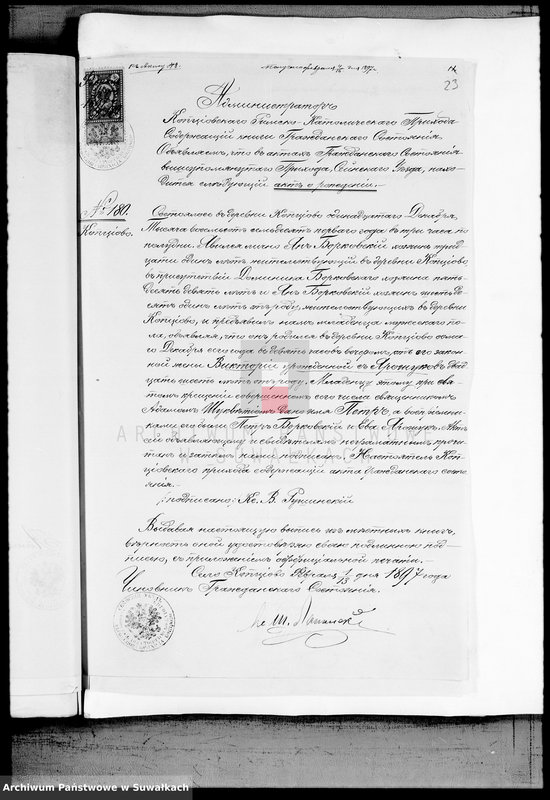 23
Администраторъ
Копцiовскаго Римско-Католическаго Прихода
Содержащiй книги Гражданскаго Состоянiя.
Объявляетъ, что въ актахъ Гражданскаго Состоянiя
вышеупомянутаго Прихода, Сейнскаго Уѣзда, нахо-
дится слѣдующiй актъ о рожденiи.
№ 180.
Копцiово.
Состоялось въ деревни Копцiово одинадцатаго Декабря,
Тысяча восемьсотъ семьдесятъ перваго года въ три часа по
полудни. Явился лично Янъ Борковскiй
цати одинъ лѣтъ жительствующiй въ деревни Копцiово
въ присутствiи Доминика Борковскаго пять-
десятъ девять лѣтъ и Янъ Борковскiй
сять одинъ лѣтъ отъ роду, жительствующихъ въ деревни
Копцiово, и предъявилъ намъ младенца мужескаго по-
ла, объявляя, что онъ родился въ деревни Копцiово
Декабря сего года въ девять часовъ вечеромъ, отъ его закон-
ной жены Викторiи урожденной съ двад-
цать шесть лѣтъ отъ роду. Младенцу этому при свя-
томъ крещенiи совершенномъ сего числа священникомъ
Адамомъ дано имя Петръ, а восприемни-
ками были Петръ Борковскiй и Ева
сей объявляющему и свидѣтелямъ неграматнымъ прочи-
танъ и затѣмъ нами подписанъ. Настоятель Коп-
цiовскаго прихода содержащiй акта гражданскаго состо-
янiя.
подписано: Кс. В.
Выдавая настоящую выпись изъ метычныхъ книгъ,
вѣрность оной удостовѣряю своею подлинною под-
писью, съ приложенiемъ оффицiальной печати.
Село Копцiово Февраля 1/13 дня 1897 года
Чиновникъ Гражданскаго Состоянiя.
Archiwum Państwowe w Suwałkach